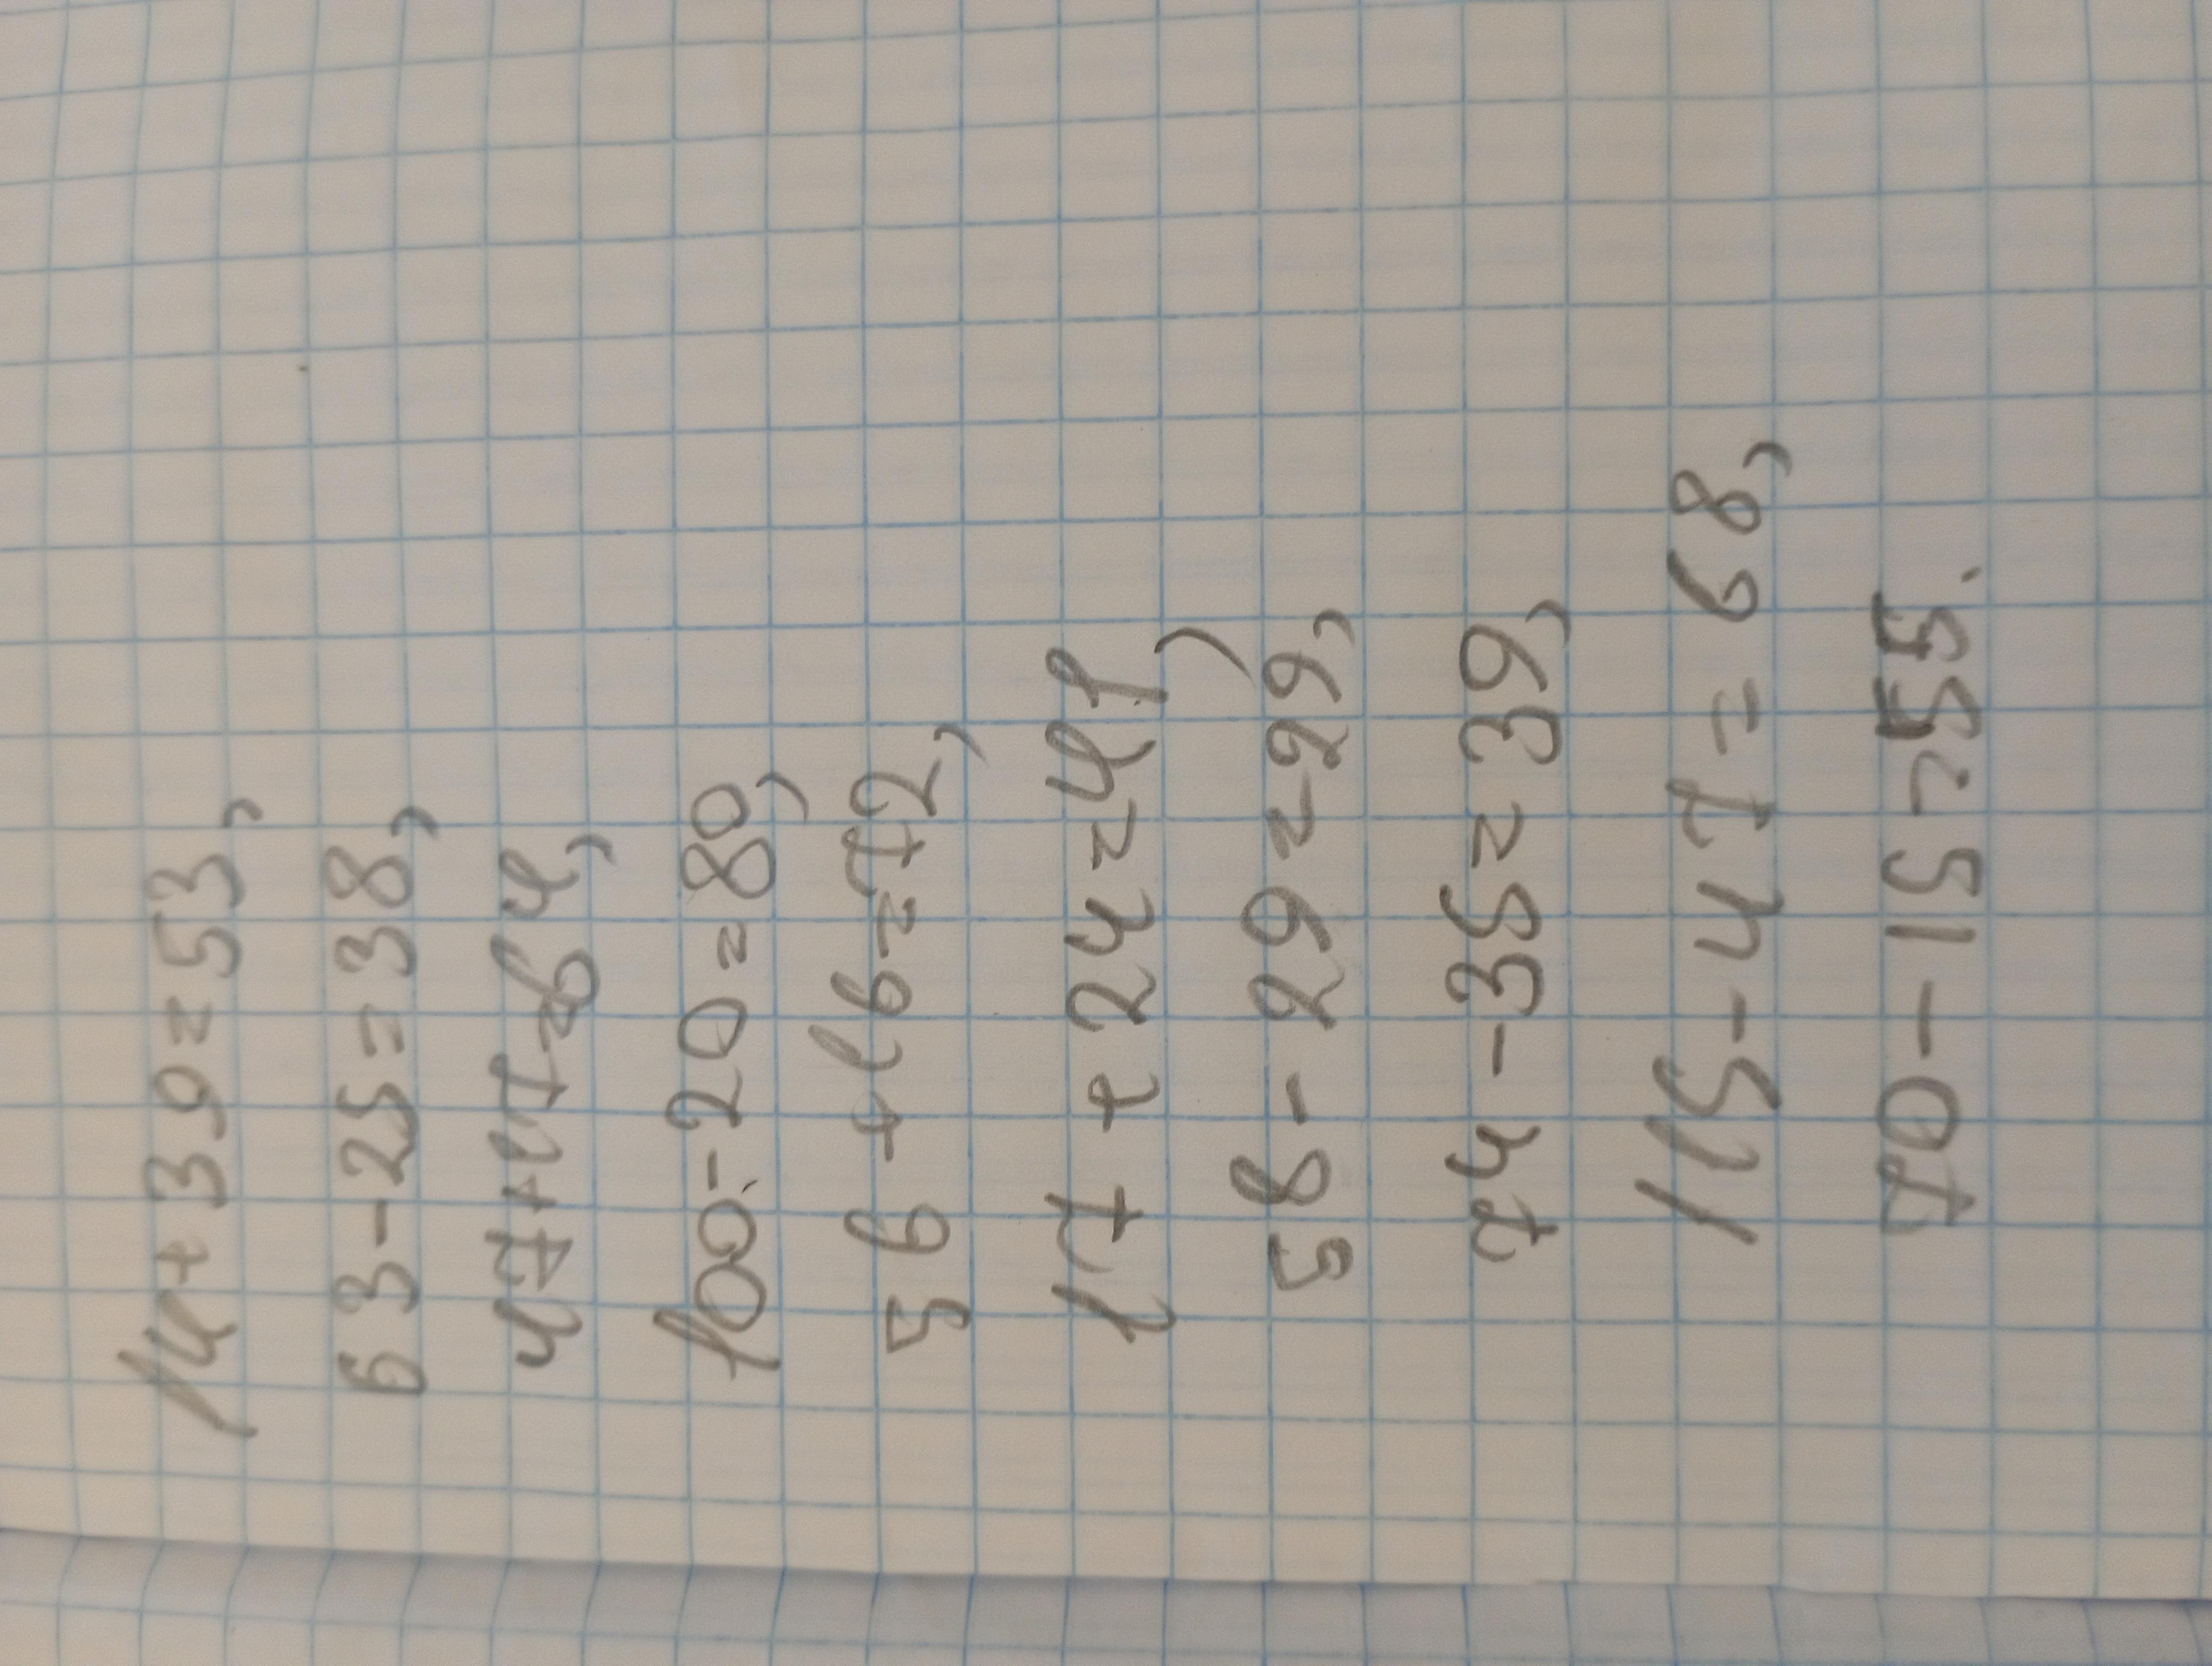 14+39=53,
63-25=38,
47+17=64,
100-20=80,
56+16=72,
17+24=41,
58-29=29,
74-35=39,
115-47=68,
70-15=55.